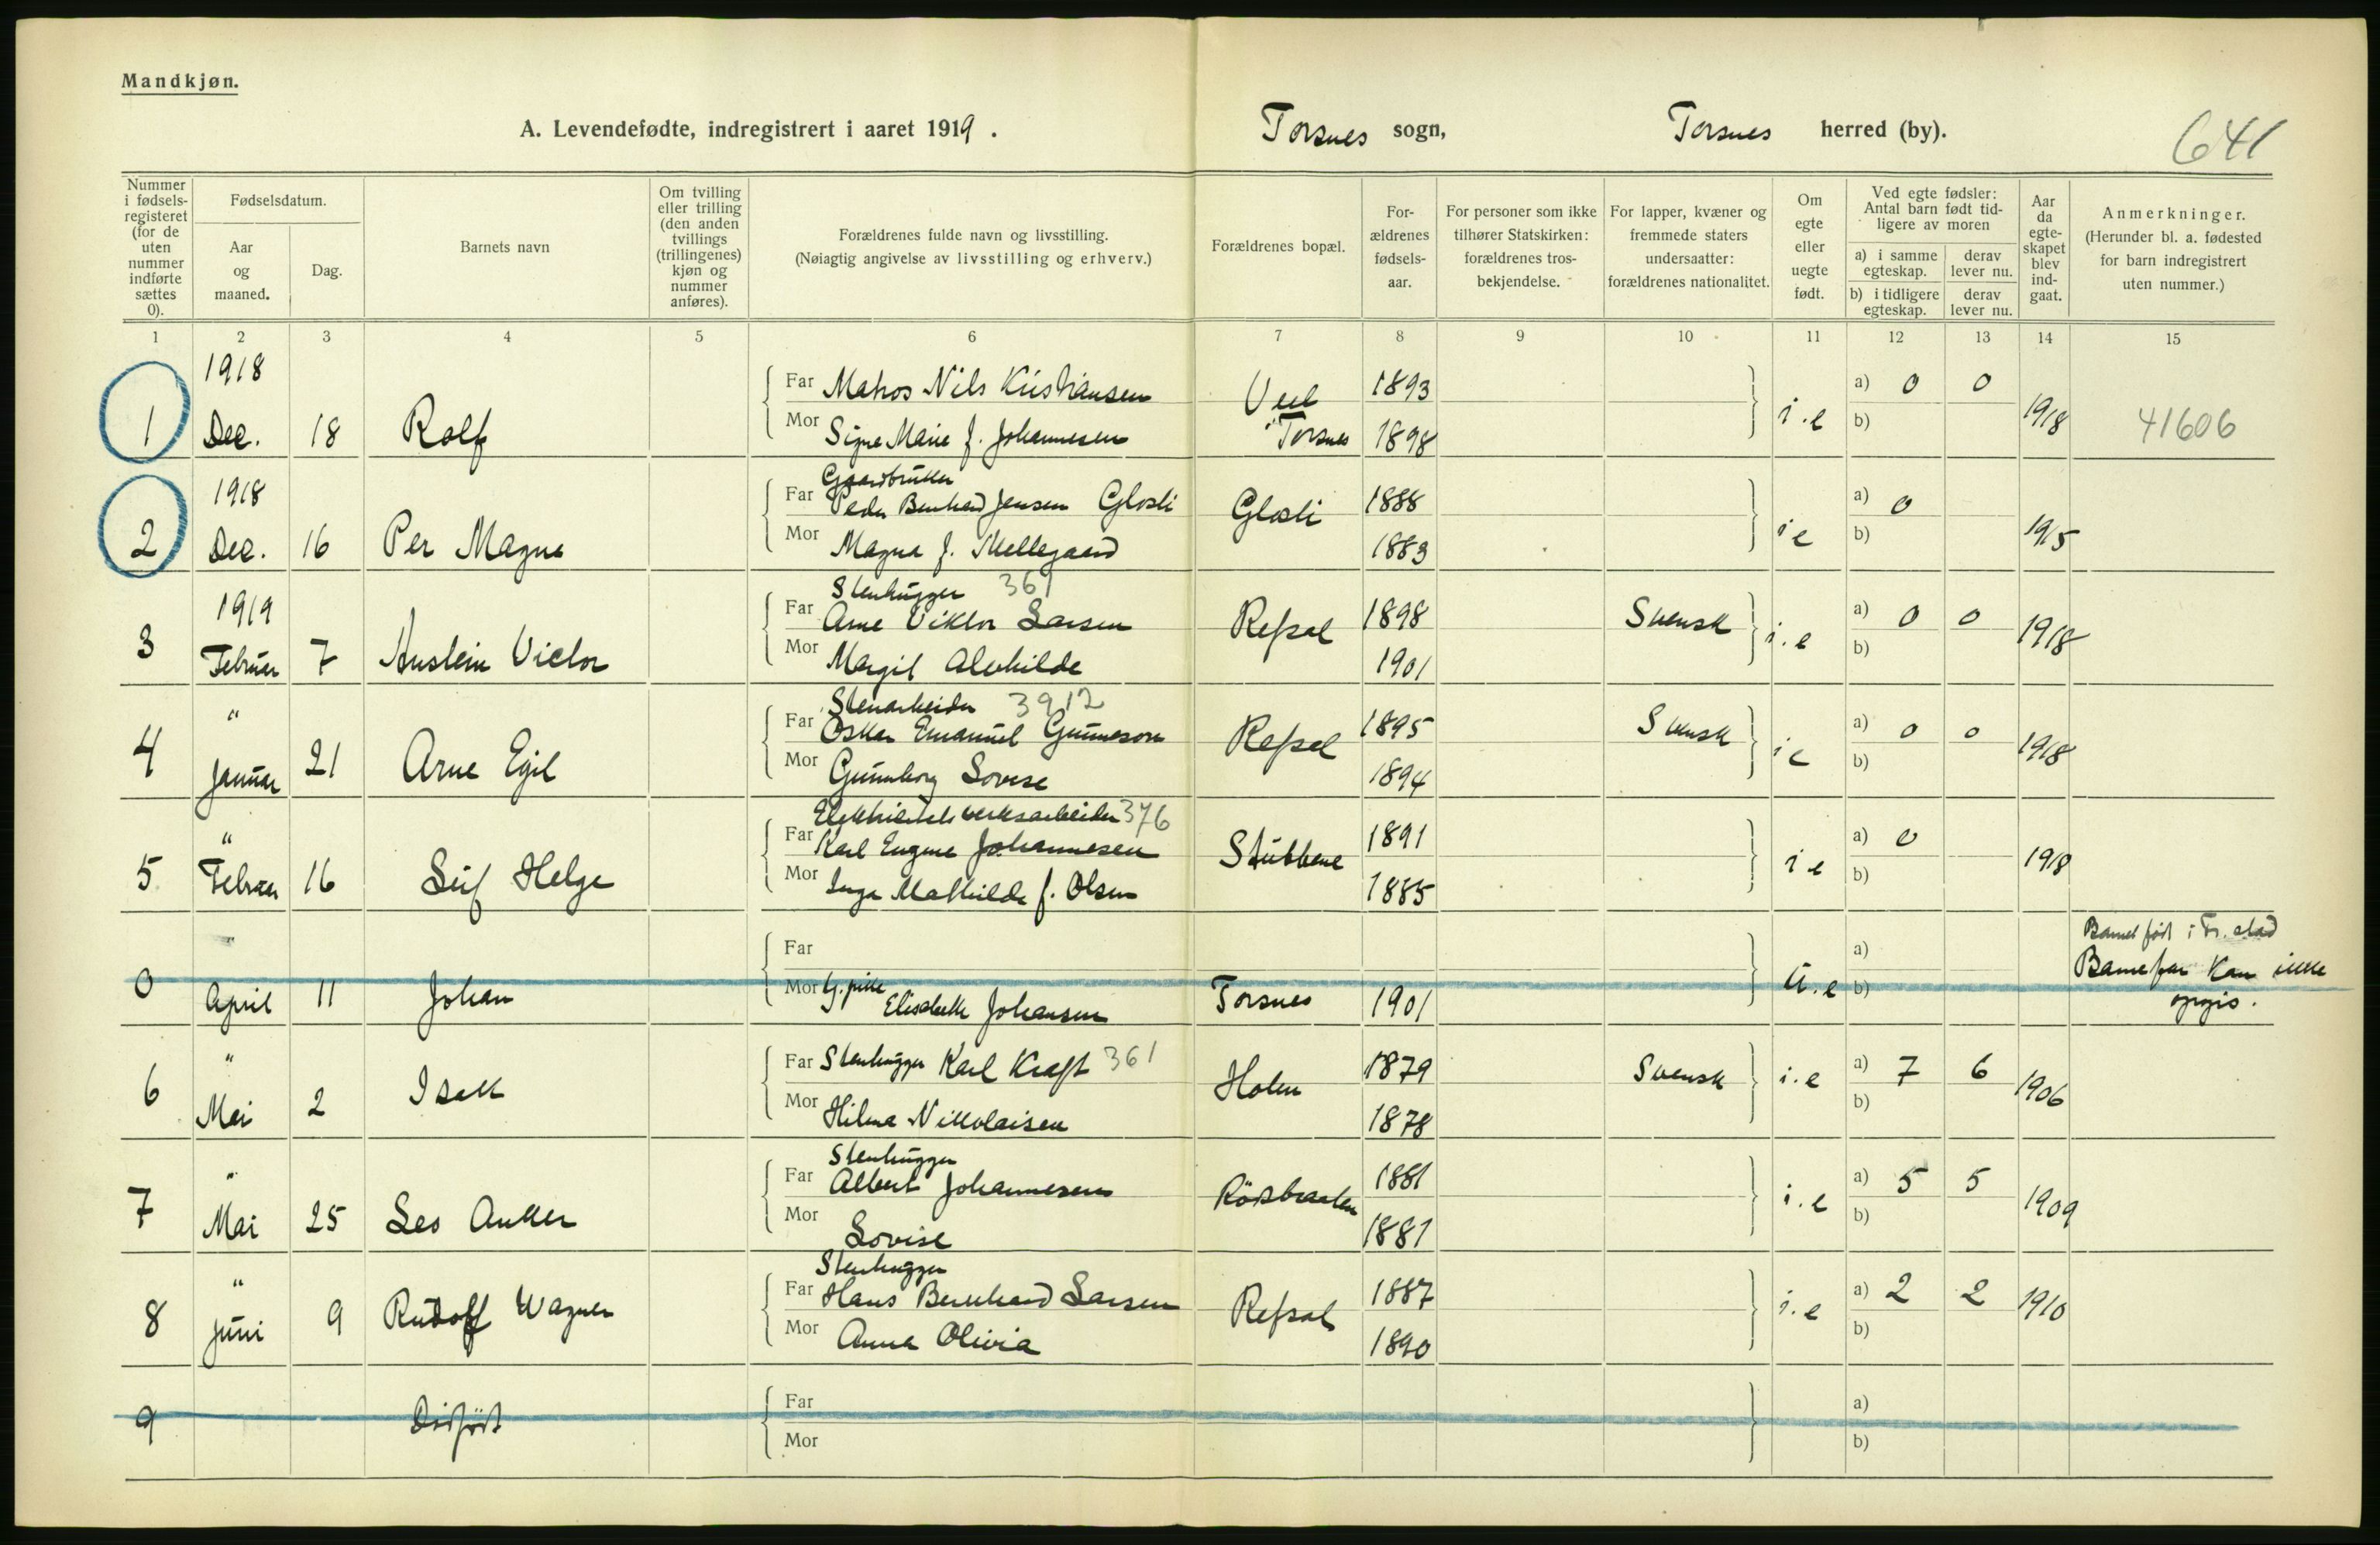 Mandkjøn.
A. Levendefødte, indregistrert i aaret 1919. Torsnes sogn, Torsnes herred (by). 641
Nummer i fødselsregisteret (for de uten nummer indførte sættes 0).
Fødselsdatum.
Aar og maaned.
Dag.
Barnets navn
Om tvilling eller trilling (den anden tvillings (trillingenes) kjøn og nummer anføres).
Forældrenes fulde navn og livsstilling.
(Nøiagtig angivelse av livsstilling og erhverv.)
Forældrenes bopæl.
Forældrenes fødselsaar.
For personer som ikke tilhører Statskirken: forældrenes trosbekjendelse.
For lapper, kvæner og fremmede staters undersaatter: forældrenes nationalitet.
Om egte eller uegte født.
Ved egte fødsler: Antal barn født tidligere av moren
a) i samme egteskap. derav lever nu.
b) i tidligere egteskap. derav lever nu.
Aar da egteskapet blev indgaat.
Anmerkninger.
(Herunder bl. a. fødested for barn indregistrert uten nummer.)
1 2 3 4 5 6 7 8 9 10 11 12 13 14 15
1918
Far Matros Nils Kristiansen 1893 a) 0 0
1 Dec. 18 Rolf Ueel i Torsnes i.e 1918 41606
Mor Signe Marie f. Johannesen 1898 b)
1918 Gaardbruker
Far Peder Bernhard Jensen Glosli 1888 a) 0
2 Dec. 16 Per Magne Glosli i e 1915
Mor Magna f. Skellegaard 1883 b)
1919 Stenhugger 361
Far Arne Viktor Larsen 1898 Svensk a) 0 0
3 Februar 7 Austein Victor Refsal i.e 1918
Mor Margit Alvhilde 1901 b)
" Stenarbeider 3912
Far Oskar Emanuel Gunneson 1895 Svensk a) 0 0
4 Januar 21 Arne Egil Refsal i e 1918
Mor Gunnborg Lovise 1894 b)
" Elektricitetsverksarbeider 376
Far Karl Eugene Johannesen 1891 a) 0
5 Februar 16 Leif Helge Stubbene i e 1918
Mor Inga Mathilde f. Olsen 1885 b)
" Far a) Barnet født i Fr.stad
0 April 11 Johan Torsnes u.e Barnefar kan ikke
Mor tj. pike Elisabeth Johansen 1901 b) opgis.
" Far Stenhugger Karl Kraft 361 1879 Svensk a) 7 6
6 Mai 2 Isak Holen i.e 1906
Mor Hilma Nikolaisen 1878 b)
" Stenhugger
Far Albert Johannesen 1881 a) 5 5
7 Mai 25 Leo Anker Rödsbraaten i.e 1909
Mor Lovise 1881 b)
" Stenhugger
Far Hans Bernhard Larsen 1887 a) 2 2
8 Juni 9 Rudolf Wagner Refsal i.e 1910
Mor Anna Olivia 1890 b)
Far a)
9 Dödfödt
Mor b)